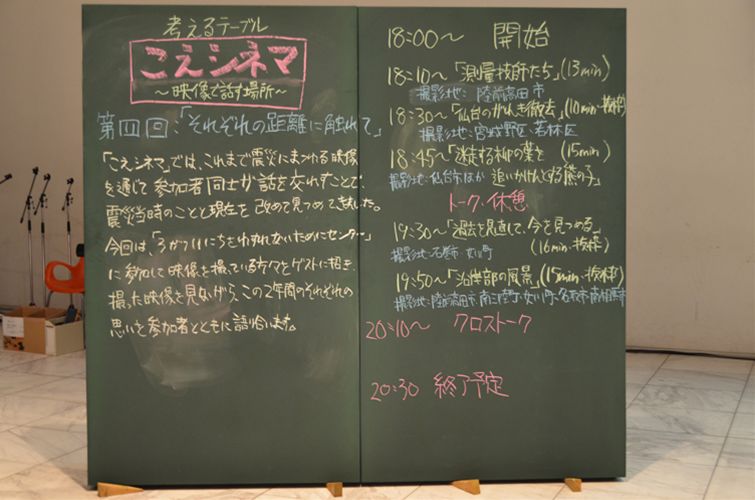 考えるテーブル
こえシネマ
～映像で話す場所～
第四回:「それぞれの距離に触れて」
「こえシネマ」では、これまで震災にまつわる映像
を通じて参加者同士が話を交わすことで、
震災当時のことと現在を改めて見つめてきました。
今回は「3がつ11にちをわすれないためにセンター」
に参加して映像を撮っている方々をゲストに招き、
撮った映像を見ながら、この2年間のそれぞれの
思いを参加者とともに語り合います。
18:00～ 開始
18:10～「測量技師たち」(13min)
撮影地: 陸前高田市
18:30～「仙台のがれき撤去」(10min・抜粋)
撮影地: 宮城野区 若林区
18:45～「迷走する柳の葉を (15min)
撮影地: 仙台市ほか 追いかけんとする熊の子」
トーク・休憩
19:30～「過去を見直して、今を見つめる」
撮影地: 石巻市・女川町 (16min・抜粋)
19:50～「沿岸部の風景」(15min・抜粋)
撮影地: 陸前高田市・南三陸町・女川町・名取市・南相馬市
20:10～ クロストーク
20:30 終了予定